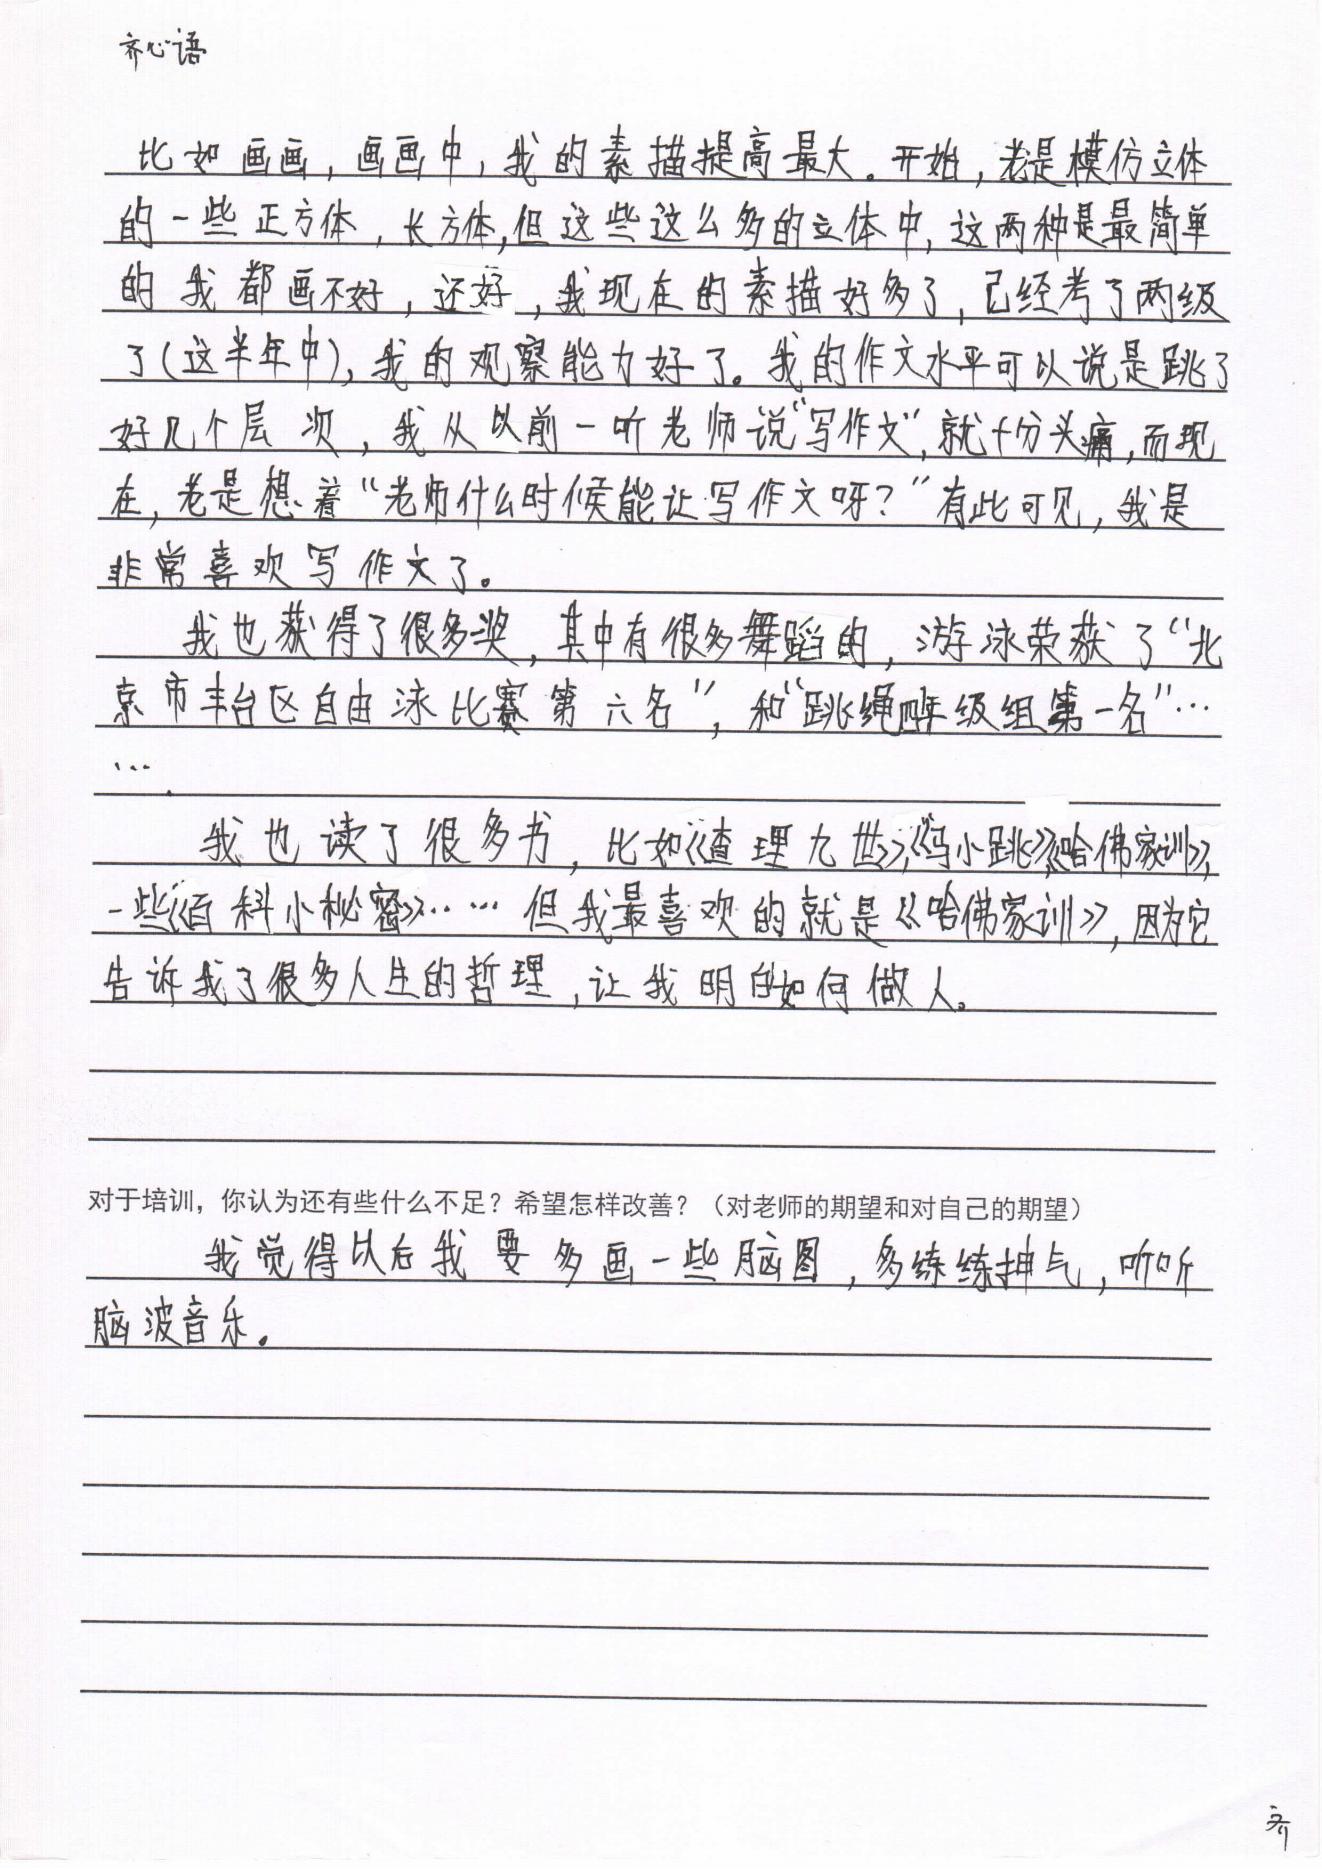 齐心语
比如画画，画画中，我的素描提高最大。开始，老是模仿立体
的一些正方体，长方体，但这些这么多的立体中，这两种是最简单
的我都画不好，还好，我现在的素描好多了，已经考了两级
了（这半年中），我的观察能力好了。我的作文水平可以说是跳了
好几个层次，我从以前一听老师说“写作文”，就十分头痛，而现
在，老是想着“老师什么时候能让写作文呀？”有此可见，我是
非常喜欢写作文了。
我也获得了很多奖，其中有很多舞蹈的，游泳荣获了“北
京市丰台区自由泳比赛第六名”，和“跳绳四年级组第一名”…
…．
我也读了很多书，比如《查理九世》，《马小跳》，《哈佛家训》，
一些《百科小秘密》……但我最喜欢的就是《哈佛家训》，因为它
告诉我了很多人生的哲理，让我明白如何做人。
对于培训，你认为还有些什么不足？希望怎样改善？（对老师的期望和对自己的期望）
我觉得以后我要多画一些脑图，多练练抻气，听听
脑波音乐。
齐